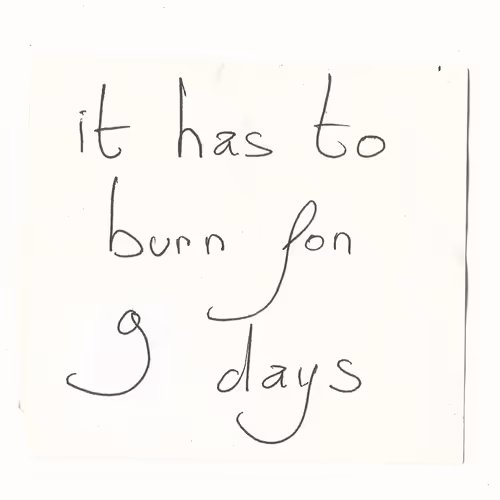 it has to
burn fon
9 days